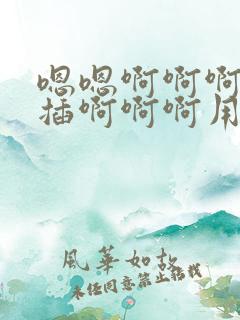 嗯嗯啊啊啊
插啊啊啊用
風華如故
未经同意禁止转载